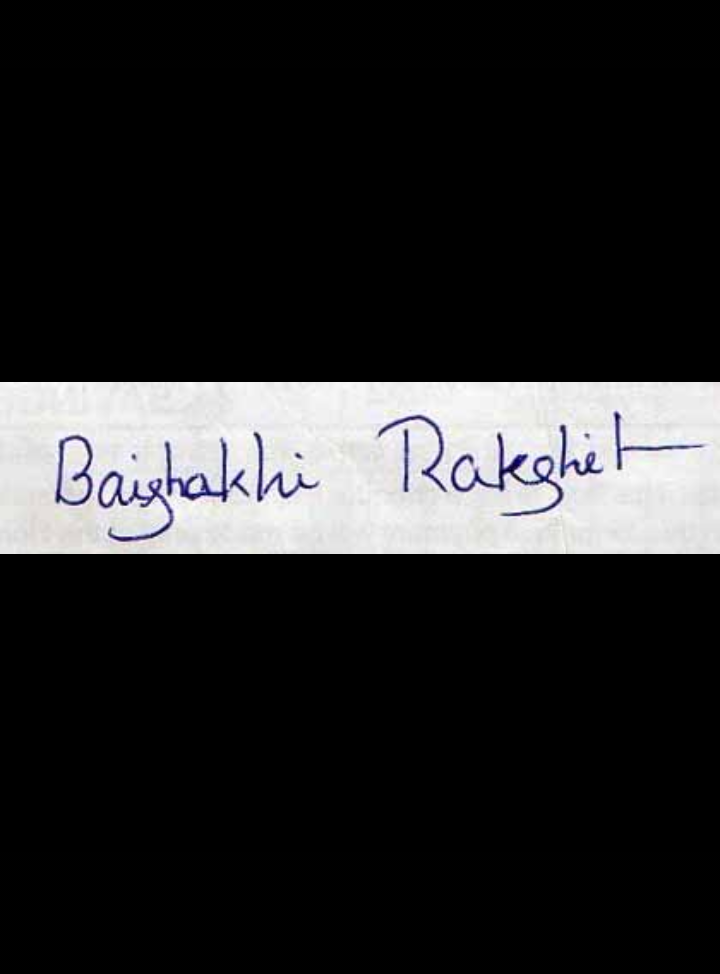 Baishakhi Rakshit